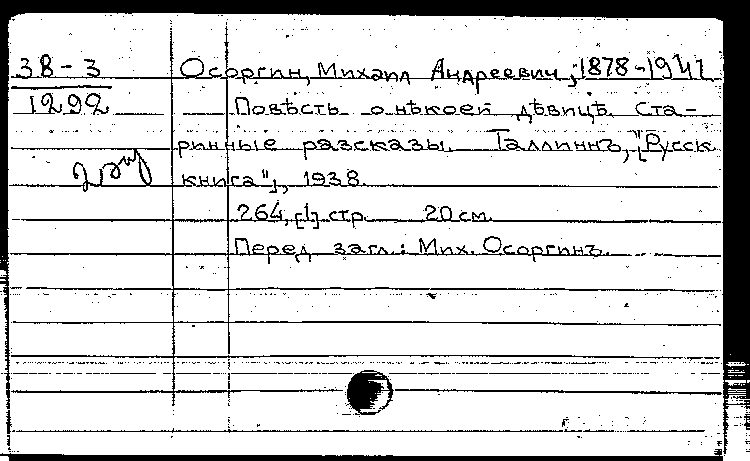 38-3
1292
Осоргин, Михаил Андреевич, 1878-1941
Повѣсть о нѣкоей дѣвицѣ. Ста-
ринные разсказы. Таллиннъ, ["Русск.
книга"], 1938.
264, [1] стр. 20 см.
Перед загл.: Мих. Осоргинъ.